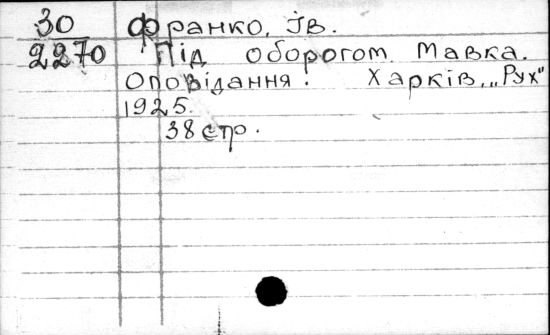 30 Франко, Ів.
2270 Під оборогом. Мавка.
Оповідання. Харків, „Рух"
1925.
38 стр.